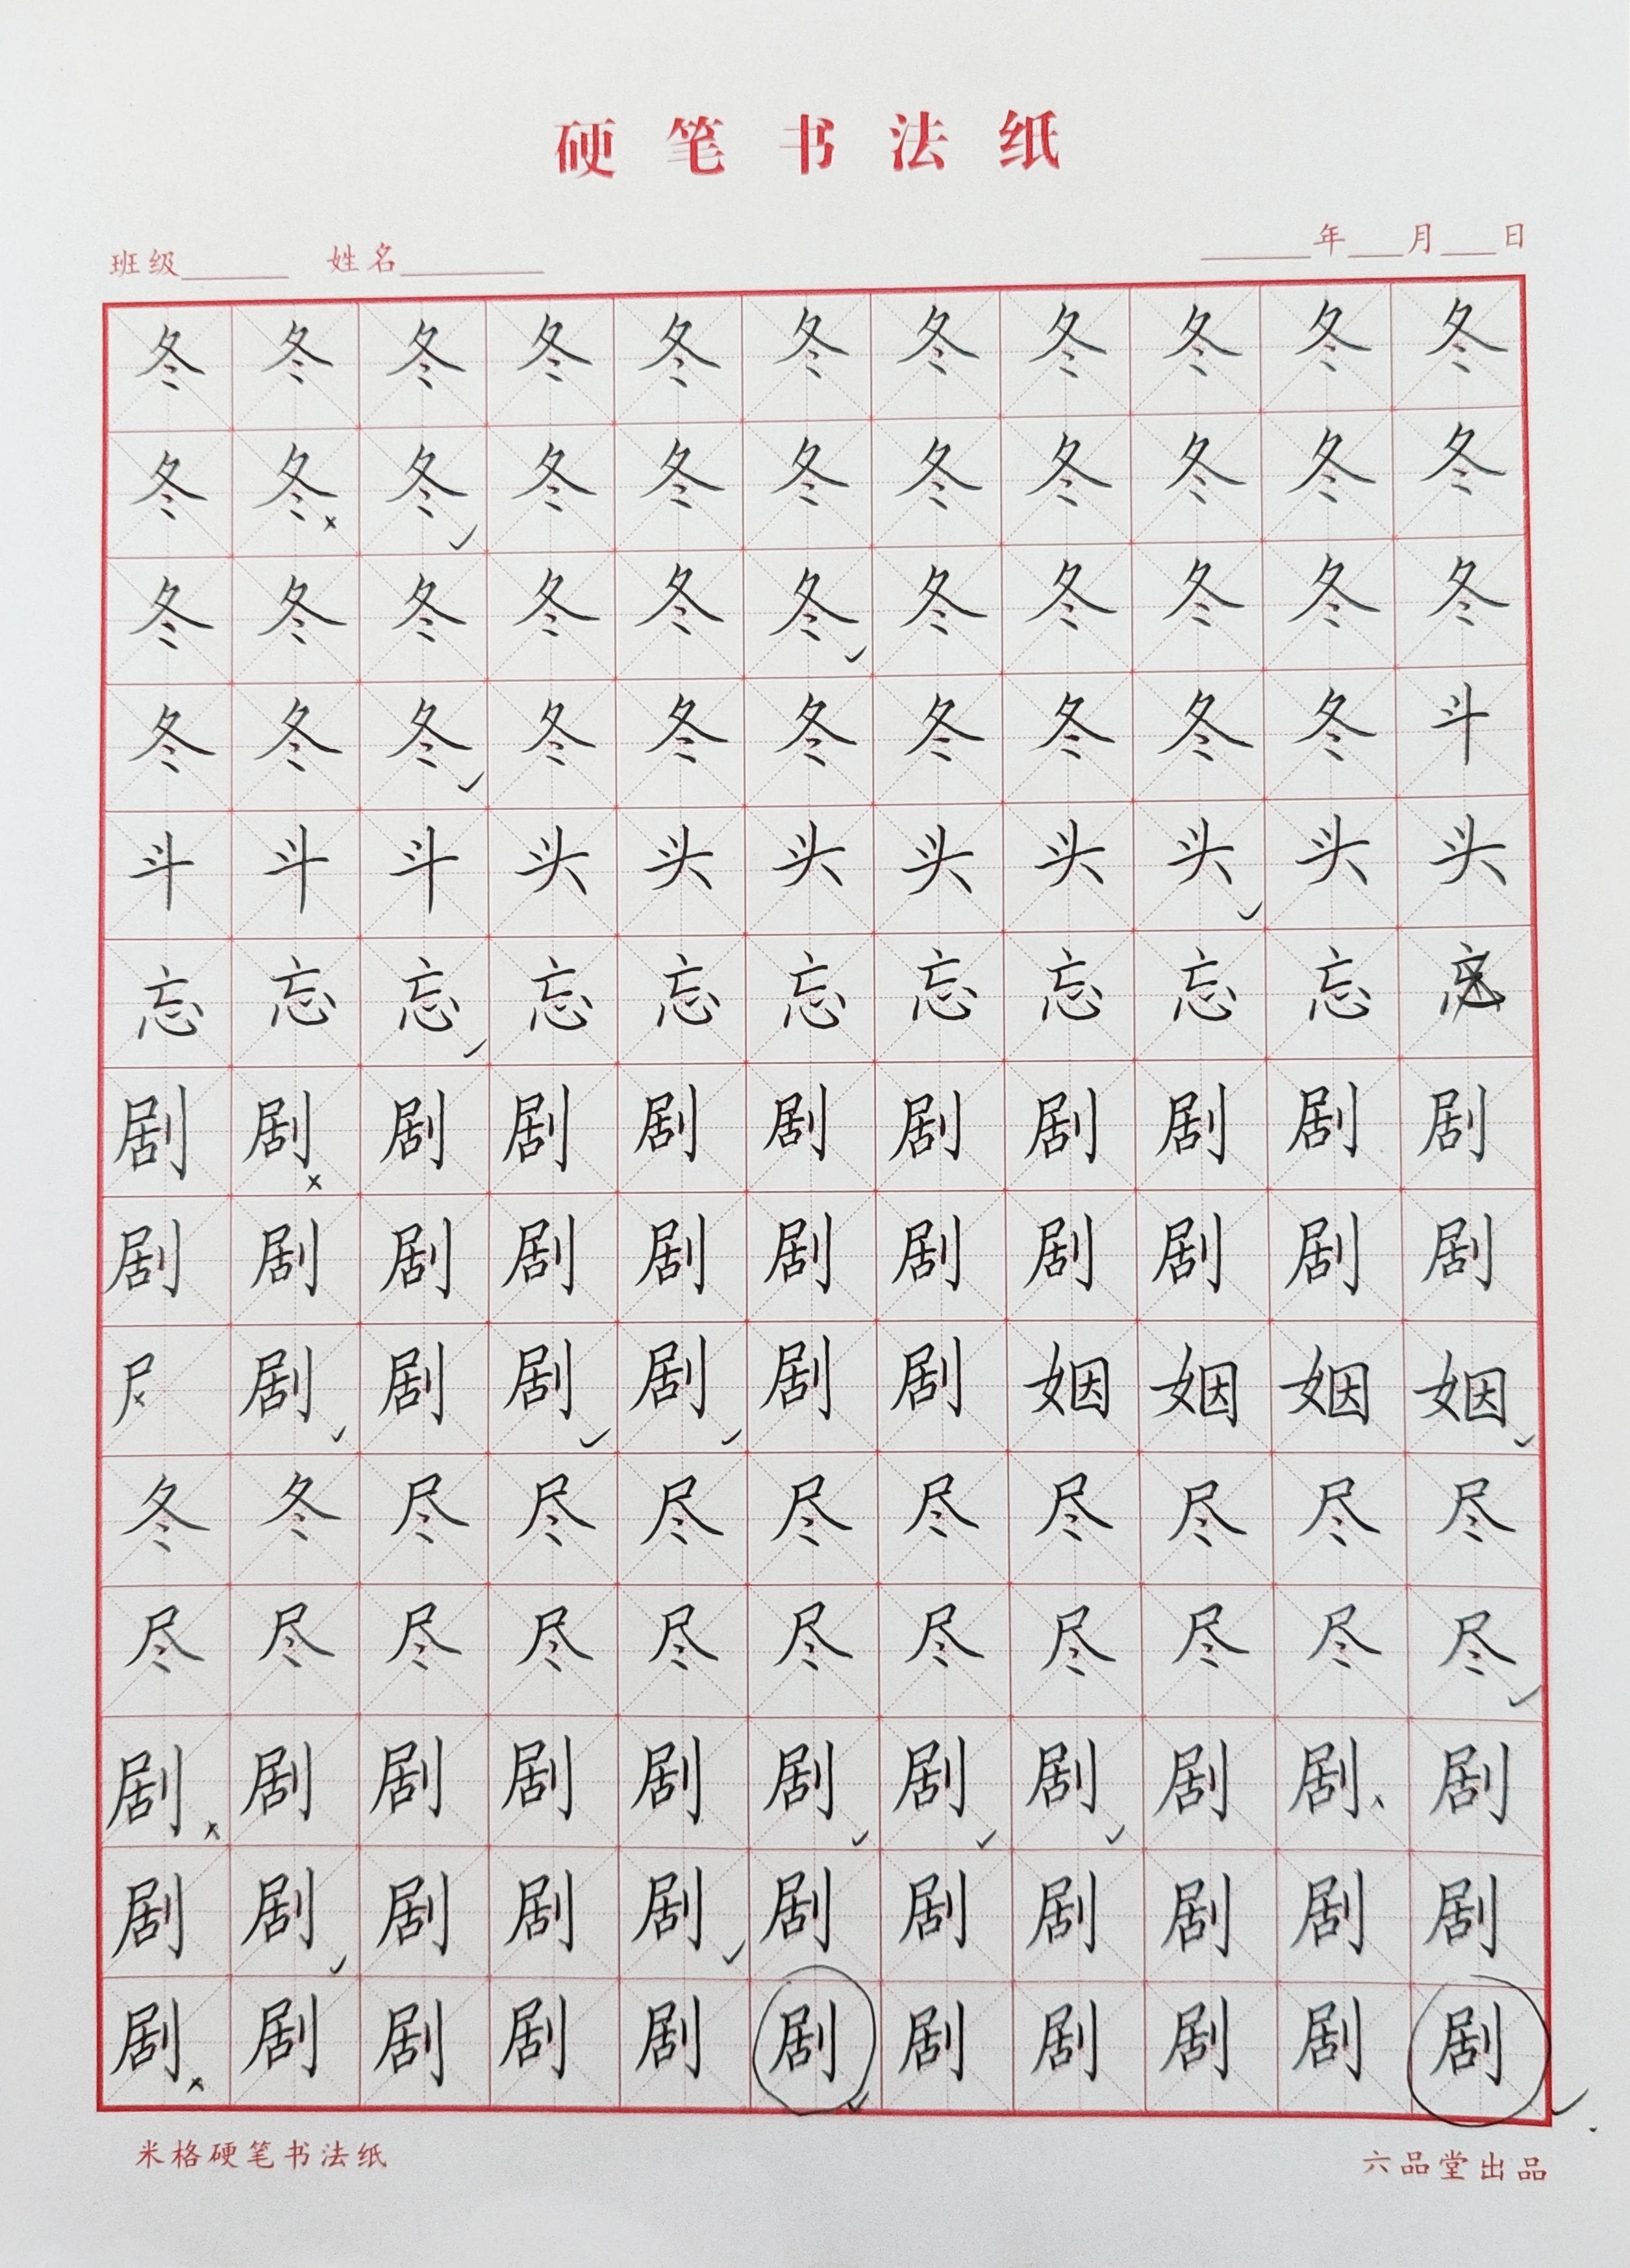 硬笔书法纸
班级______ 姓名________ ______年___月___日
冬冬冬冬冬冬冬冬冬冬冬
冬冬冬冬冬冬冬冬冬冬冬
冬冬冬冬冬冬冬冬冬冬冬
冬冬冬冬冬冬冬冬冬冬斗
斗斗斗头头头头头头头头
忘忘忘忘忘忘忘忘忘忘
剧剧剧剧剧剧剧剧剧剧剧
剧剧剧剧剧剧剧剧剧剧剧
剧剧剧剧剧剧姻姻姻姻
冬冬尽尽尽尽尽尽尽尽尽
尽尽尽尽尽尽尽尽尽尽尽
剧剧剧剧剧剧剧剧剧剧剧
剧剧剧剧剧剧剧剧剧剧剧
剧剧剧剧剧剧剧剧剧剧剧
米格硬笔书法纸 六品堂出品